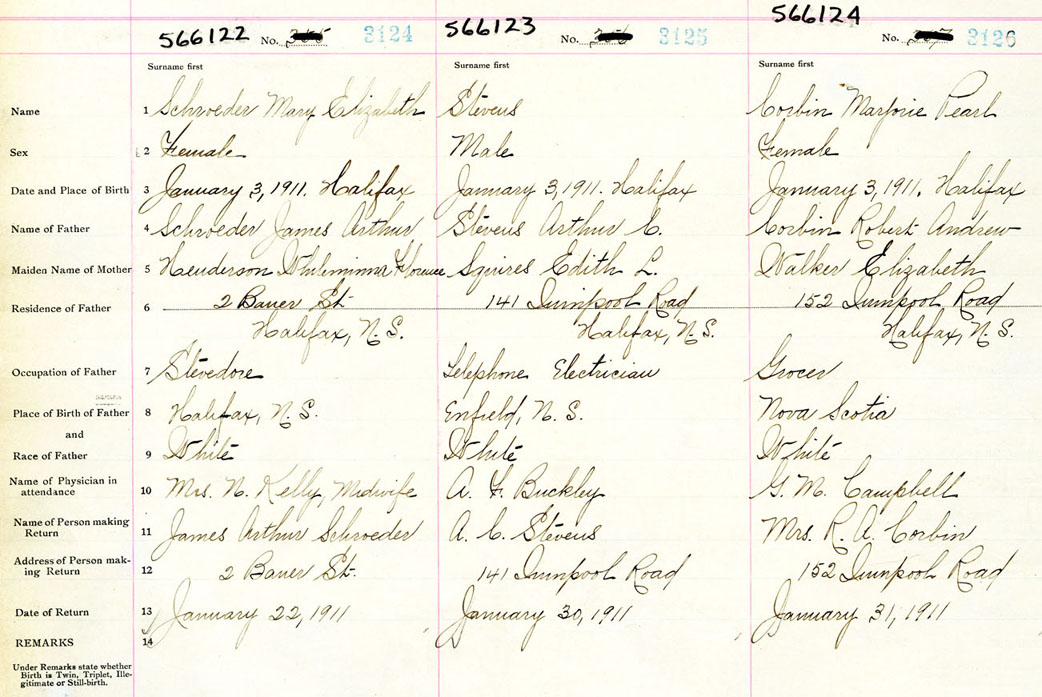 566122 No. 3124 566123 No. 3125 566124 No. 3126
Surname first Surname first Surname first
Name 1 Schroeder Mary Elizabeth Stevens Corbin Marjorie Pearl
Sex 2 Female Male Female
Date and Place of Birth 3 January 3, 1911. Halifax January 3, 1911. Halifax January 3, 1911. Halifax
Name of Father 4 Schroeder James Arthur Stevens Arthur C. Corbin Robert Andrew
Maiden Name of Mother 5 Henderson Florence Squires Edith L. Walker Elizabeth
Residence of Father 6 2 Bauer St. 141 Quinpool Road 152 Quinpool Road
Halifax, N.S. Halifax, N.S. Halifax, N.S.
Occupation of Father 7 Stevedore Telephone Electrician Grocer
Place of Birth of Father 8 Halifax, N.S. Enfield, N.S. Nova Scotia
and
Race of Father 9 White White White
Name of Physician in
attendance 10 Mrs. N. Kelly, Midwife A. F. Buckley G. M. Campbell
Name of Person making
Return 11 James Arthur Schroeder A. C. Stevens Mrs. R. A. Corbin
Address of Person mak-
ing Return 12 2 Bauer St. 141 Quinpool Road 152 Quinpool Road
Date of Return 13 January 22, 1911 January 30, 1911 January 31, 1911
REMARKS 14
Under Remarks state whether
Birth is Twin, Triplet, Ille-
gitimate or Still-birth.